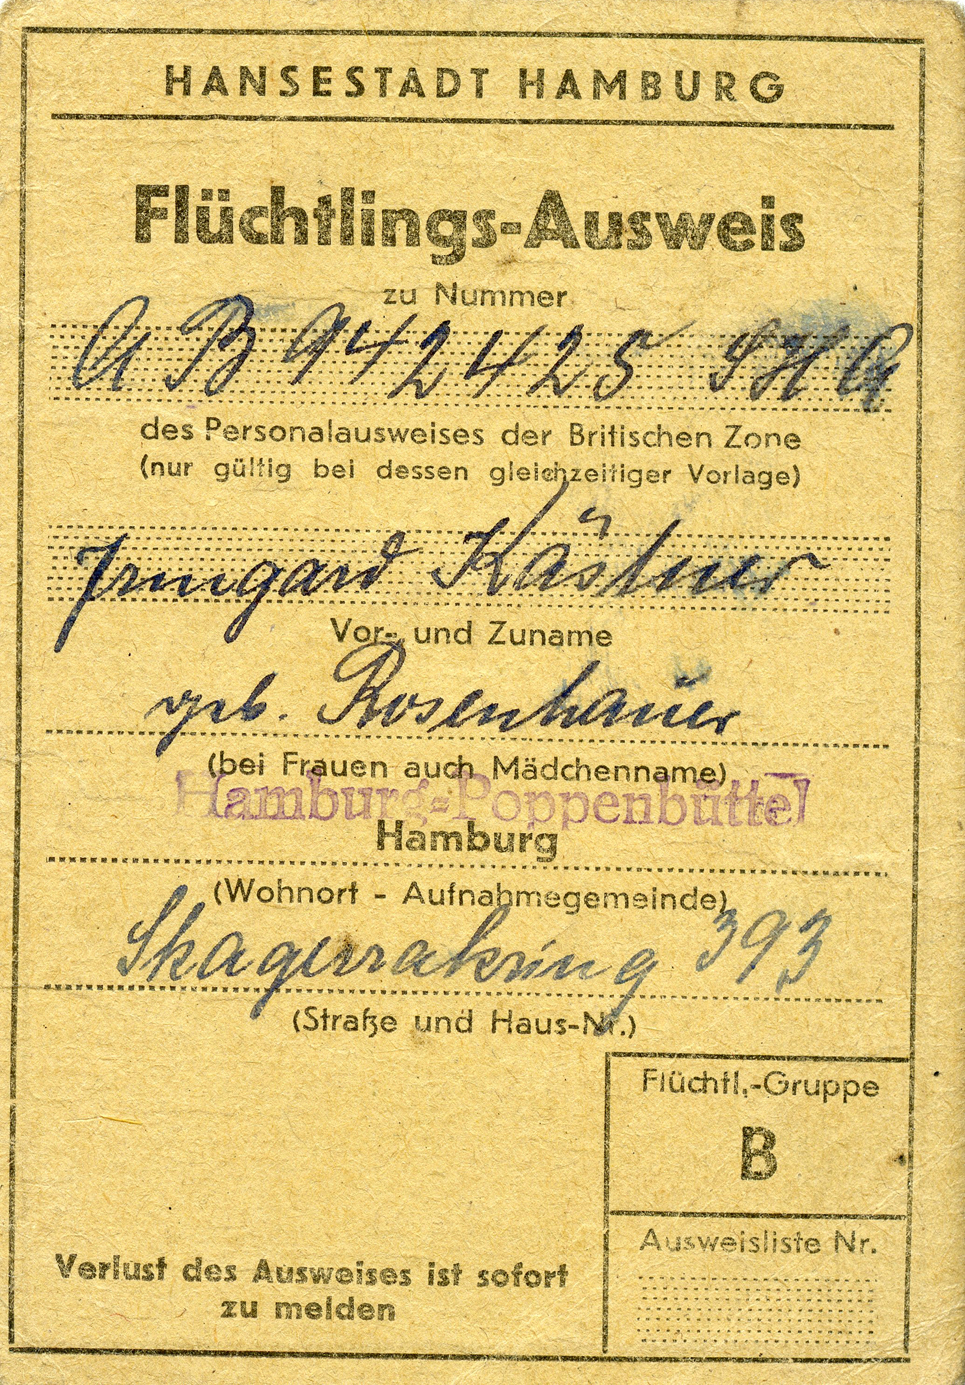 HANSESTADT HAMBURG
Flüchtlings-Ausweis
zu Nummer
AB 942425 SHA
des Personalausweises der Britischen Zone
(nur gültig bei dessen gleichzeitiger Vorlage)
Irmgard Kästner
Vor- und Zuname
geb. Rosenhauer
(bei Frauen auch Mädchenname)
Hamburg-Poppenbüttel
Hamburg
(Wohnort - Aufnahmegemeinde)
Skagerrakring 393
(Straße und Haus-Nr.)
Flüchtl.-Gruppe
B
Ausweisliste Nr.
Verlust des Ausweises ist sofort
zu melden